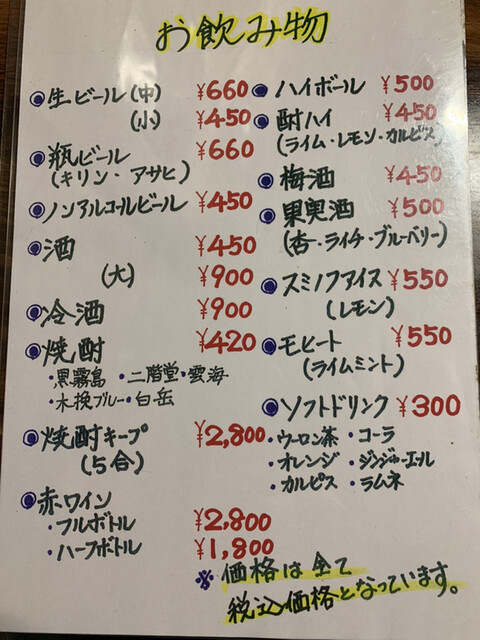 お飲み物
◉生ビール(中) ¥660
(小) ¥450
◉瓶ビール ¥660
(キリン・アサヒ)
◉ノンアルコールビール ¥450
◉酒 ¥450
(大) ¥900
◉冷酒 ¥900
◉焼酎 ¥420
・黒霧島 ・二階堂・雲海
・木挽ブルー・白岳
◉焼酎キープ ¥2,800
(5合)
◉赤ワイン
・フルボトル ¥2,800
・ハーフボトル ¥1,800
◉ハイボール ¥500
◉酎ハイ ¥450
(ライム・レモン・カルピス)
◉梅酒 ¥450
◉果実酒 ¥500
(杏・ライチ・ブルーベリー)
◉スミノフアイス ¥550
(レモン)
◉モヒート ¥550
(ライムミント)
◉ソフトドリンク ¥300
・ウーロン茶 ・コーラ
・オレンジ ・ジンジャーエール
・カルピス ・ラムネ
※価格は全て
税込価格となっています。